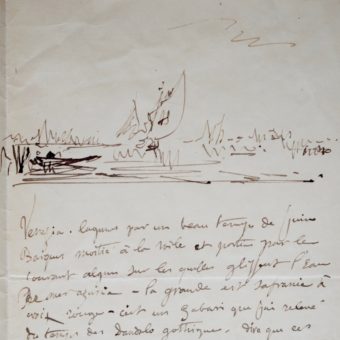 Venezia. lagunes par un beau temps de juin
Barques mortes à la voile et portées par le
courant algues sur les glissent l'eau
mer - la grande est safranée à
croix rouge - c'est un gabari que j'ai relevé
du temps des Dandolo gothique. dire que ces